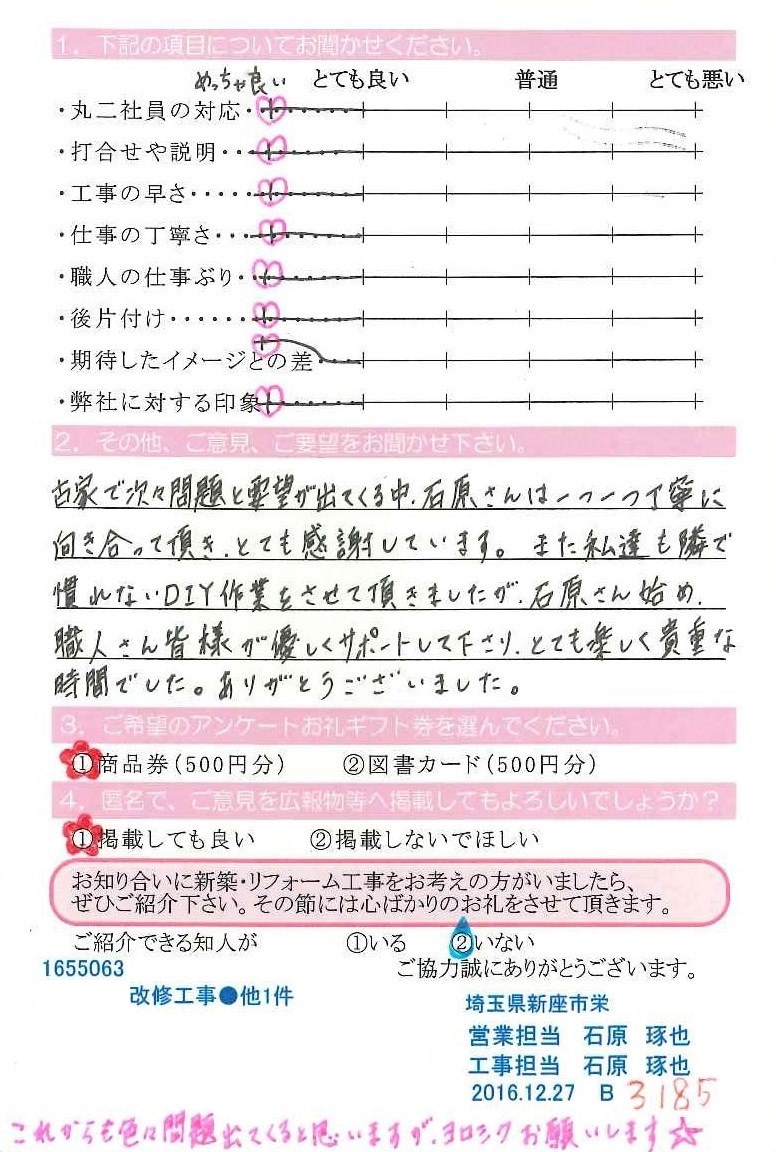 1. 下記の項目についてお聞かせください。
めっちゃ良い とても良い 普通 とても悪い
・丸二社員の対応・
・打合せや説明・・
・工事の早さ・・・・・
・仕事の丁寧さ・・・
・職人の仕事ぶり・
・後片付け・・・・・・
・期待したイメージとの差
・弊社に対する印象
2. その他、ご意見、ご要望をお聞かせ下さい。
古家で次々問題と要望が出てくる中、石原さんは一つ一つ丁寧に
向き合って頂き、とても感謝しています。また私達も隣で
慣れないDIY作業をさせて頂きましたが、石原さん始め、
職人さん皆様が優しくサポートして下さり、とても楽しく貴重な
時間でした。ありがとうございました。
3. ご希望のアンケートお礼ギフト券を選んでください。
①商品券(500円分) ②図書カード(500円分)
4. 匿名で、ご意見を広報物等へ掲載してもよろしいでしょうか?
①掲載しても良い ②掲載しないでほしい
お知り合いに新築・リフォーム工事をお考えの方がいましたら、
ぜひご紹介下さい。その節には心ばかりのお礼をさせて頂きます。
ご紹介できる知人が ①いる ②いない
1655063 ご協力誠にありがとうございます。
改修工事●他1件
埼玉県新座市栄
営業担当 石原 琢也
工事担当 石原 琢也
2016.12.27 B 3185
これからも色々問題出てくると思いますが、ヨロシクお願いします☆